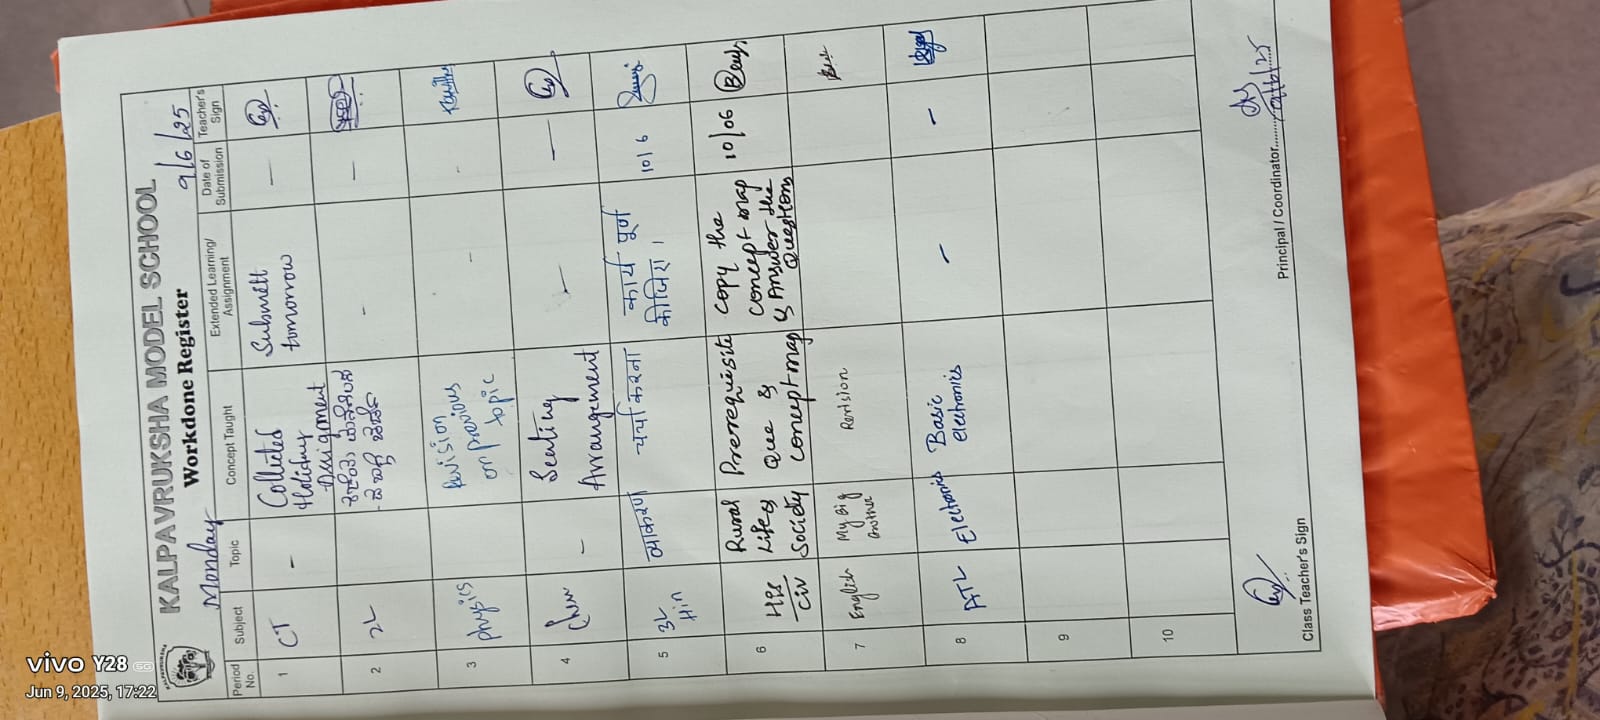 KALPAVRUKSHA MODEL SCHOOL
Workdone Register
Monday
9/6/25
Period No.
Subject
Topic
Concept Taught
Extended Learning/ Assignment
Date of Submission
Teacher's Sign
1
CT
-
Collected
Holiday
Assignment
Submitt
tomorrow
—
2
2L
-
—
3
physics
Revision
on previous
topic
-
-
4
Chem
-
Seating
Arrangement
—
—
5
3L
Hin
व्याकरण
चर्चा करना
कार्य पूर्ण
कीजिए।
10/6
6
His
Civ
Rural
Life &
Society
Prerrequisite
Que &
Conceptmap
Copy the
Concept map
& Answer the
Questions
10/06
7
English
My Big
Brother
Revision
8
ATL
Electronics
Basic
electronics
-
-
9
10
Class Teacher's Sign
Principal / Coordinator.........
vivo Y28 5G
Jun 9, 2025, 17:22